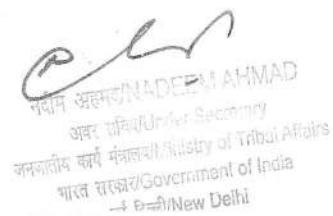 नदीम अहमद/NADEEM AHMAD
अवर सचिव/Under Secretary
जनजातीय कार्य मंत्रालय/Ministry of Tribal Affairs
भारत सरकार/Government of India
दिल्ली/New Delhi